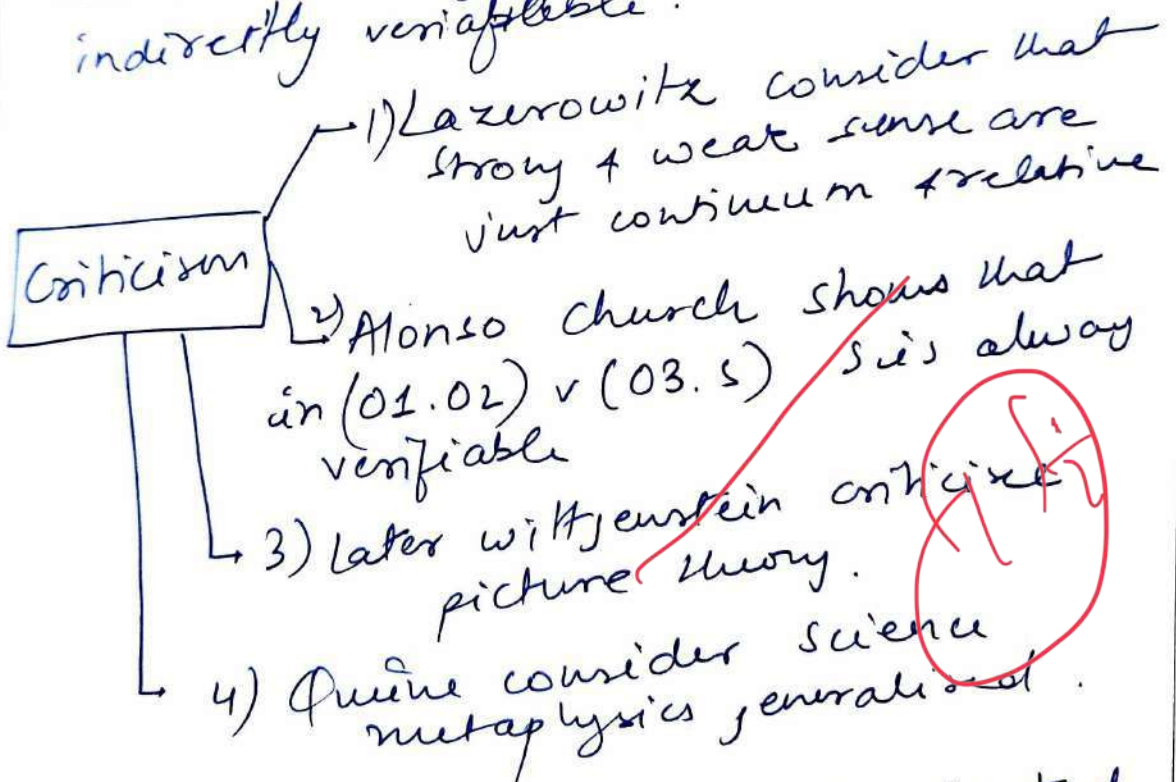 indirectly
1) Lazerowitz consider that
strong & weak sense are
just continuum & relative
Criticism
2) Alonso Church shows that
in (01.02) v (03.S) S is alway
verifiable
3) Later wittgenstein criticize
picture theory.
4) Quine consider science
metaphysics generalised.